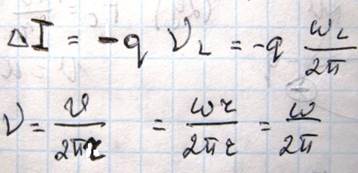 ΔI = -q ν_L = -q ω_L / 2π
ν = v / 2πr = ωr / 2πr = ω / 2π